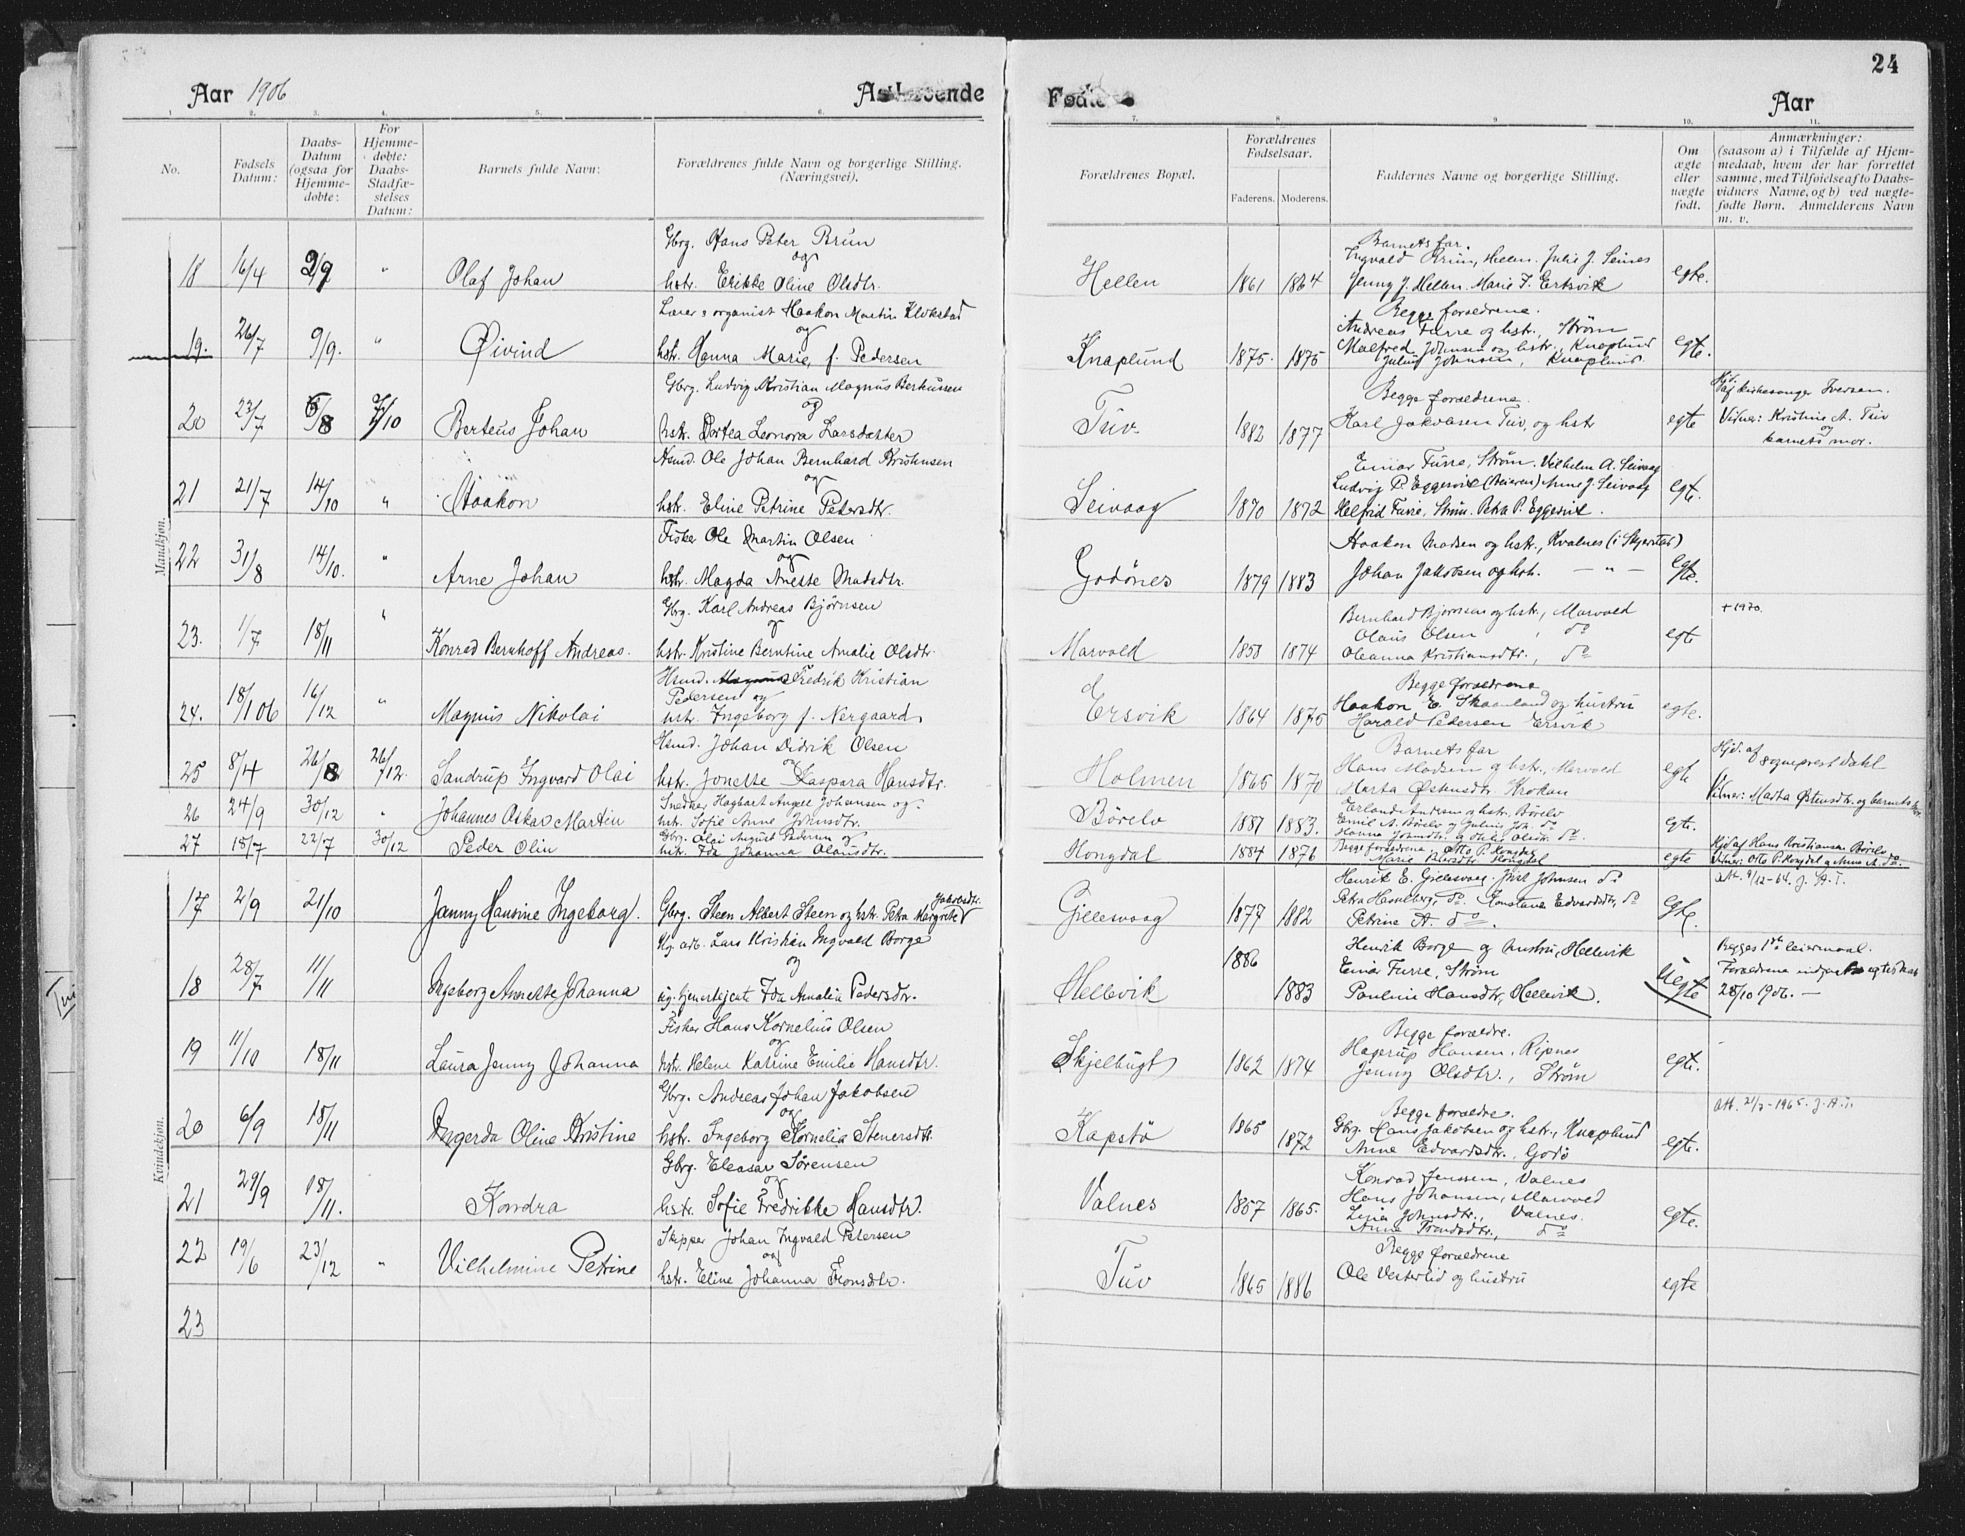 24
Aar 1906
Fødte
Aar
No.
Fødsels Datum:
Daabs-Datum (ogsaa for Hjemme-døbte:
For Hjemme-døbte: Daabs-Stadfæ-stelses Datum:
Barnets fulde Navn:
Forældrenes fulde Navn og borgerlige Stilling. (Næringsvei).
Forældrenes Bopæl.
Forældrenes Fødselsaar.
Faderens. Moderens.
Faddernes Navne og borgerlige Stilling.
Om ægte eller uægte født.
Anmærkninger:
(saasom a) i Tilfælde af Hjem-
medaab, hvem der har forrettet
samme, med Tilføielse af to Daabs-
vidners Navne, og b) ved uægte-
fødte Børn. Anmelderens Navn
m. v.
Mandkjøn.
Gbrg. Hans Peter Brun
og
18 16/4 2/9 " Olaf Johan hstr. Erikke Oline Olsdtr.
Hellen 1861 1864
Barnets far.
Ingvald Brun, Hellen. Julie J. Seines
Jenny J. Hellen. Marie F. Ertsvik
egte.
Lærer & organist Haakon Martin Klokstad
og
19. 26/7 9/9. " Øivind hstr. Hanna Marie, f. Pedersen
Knaplund 1875. 1875
Begge forældrene.
Andreas Furre og hstr., Strøm
Malfred Johnsen og hstr., Knaplund
Julius Johnsen, Knaplund.
egte.
Gbrg. Ludvig Kristian Magnus Berhussen
og
20 23/7 5/8 7/10 Berteus Johan hstr. Dortea Leonora Larsdatter
Tuv 1882 1877
Begge forældrene.
Karl Jakobsen Tuv, og hstr
egte
Hjd. af kirkesanger Iversen.
Vitner: Kristine A. Tuv
og
barnets mor.
Hsmd. Ole Johan Bernhard Kristensen
og
21 21/7 14/10 " Haakon hstr. Eline Petrine Petersdtr.
Seivaag 1870 1872
Einar Furre, Strøm. Vilhelm A. Seivaag
Ludvig P. Eggesvik (Beieren) Anne J. Seivaag
Helfrid Furre, Strøm. Petra P. Eggesvik.
egte.
Fisker Ole Martin Olsen
og
22 31/8 14/10. " Arne Johan hstr. Magda Aneste Madsdtr.
Godønes 1879 1883
Haakon Madsen og hstr., Kvalnes (i Skjerstad)
Johan Jakobsen og hstr. — " —
egte.
Gbrg. Karl Andreas Bjørnsen
og
23. 1/7 18/11 " Konrad Bernhoff Andreas. hstr. Kristine Berntine Amalie Olsdtr.
Marvold 1858 1874
Bernhard Bjørnsen og hstr., Marvold
Olaus Olsen, do
Oleanna Kristiansdtr., do
egte
+ 1970.
Hsmd. Magnus Fredrik Kristian
Pedersen og
24. 18/1 06 16/12 " Magnus Nikolai hstr. Ingeborg f. Nergaard
Ersvik 1864 1875
Begge forældrene
Haakon E. Skaanland og hustru
Harald Pedersen Ersvik
egte.
Hsmd. Johan Didrik Olsen
og
25 8/4 26/8 26/12. Sandrup Ingvard Olai hstr. Jonette Kaspara Hansdtr.
Holmen 1865 1870
Barnets far
Hans Madsen og hstr., Marvold
Marta Østensdtr. Krokan
egte
Hjd. af sogneprest Dahl
Vitner: Marta Østensdtr. og barnets far.
26 24/9 30/12 " Johannes Oskar Martin Snedker Hagbart Angell Johansen og
hstr. Sofie Anne Johnsdtr.
Børelv 1881 1883.
Erlandt Andersen og hstr. Børelv
Emil A. Børelv og Gulnis Joh. do
egte.
27 18/7 22/7 30/12 Peder Olin Gbrg. Olai August Pedersen og
hstr. Ida Johanna Olausdtr.
Hongdal 1884 1876
Begge forældrene. Otto P. Hongdal
Marie Pedersdtr. Hongdal
egte
Hjd af Hans Kristiansen Børelv
Vitner: Otto P. Hongdal og Anne A. do.
Kvindekjøn.
17 2/9 21/10 Janny Hansine Ingeborg. Gbrg. Steen Albert Steen og hstr. Petra Margrethe Jakobsdtr.
Gillesvaag 1877 1882
Henrik E. Gillesvaag. Just Johnsen do
Petra Hanneberg, do Konstanse Edvardsdtr, do
Petrine A. do.
egte.
Att. 9/12-64. J. A. T.
Ug. arb. Lars Kristian Ingvald Borge
og
18 28/7 11/11 Ingeborg Annette Johanna ug. tjenestejente Ida Amalia Pedersdtr.
Hellevik 1886 1883
Henrik Borge og hustru, Hellevik
Einar Furre, Strøm
Pauline Hansdtr, Hellevik.
Uegte
Begges 1ste leiermaal.
Forældrene indgaar egteskab
28/10 1906. —
Fisker Hans Kornelius Olsen
og
19 11/10 18/11 Laura Jenny Johanna hstr. Helene Katrine Emilie Hansdtr.
Skjelbugt 1862 1874
Begge forældre.
Hagerup Hansen, Ripnes
Jenny Olsdtr., Strøm
egte.
Gbrg. Andreas Johan Jakobsen
og
20 6/9 18/11 Dagerda Oline Kristine hstr. Ingeborg Kornelia Stenersdtr.
Kapstø 1865 1872
Begge forældre.
Gbrg. Hans Jakobsen og hstr., Knaplund
Anne Edvardsdtr., Godø
egte.
Att. 21/7-1965. J. A. T.
Gbrg. Eleasar Sørensen
og
21 29/9 18/11. Kondra hstr. Sofie Fredrikke Hansdtr.
Valnes 1857 1865.
Konrad Jenssen, Valnes
Hans Johansen, Marvold
Lina Johnsdtr., Valnes.
Anna Trondsdtr., do
egte.
Skipper Johan Ingvald Petersen
og
22 19/6 23/12 " Vilhelmine Petrine hstr. Eline Johanna Fronsdtr.
Tuv 1865 1886
Begge forældrene
Ole Vesterlid og hustru
egte
23